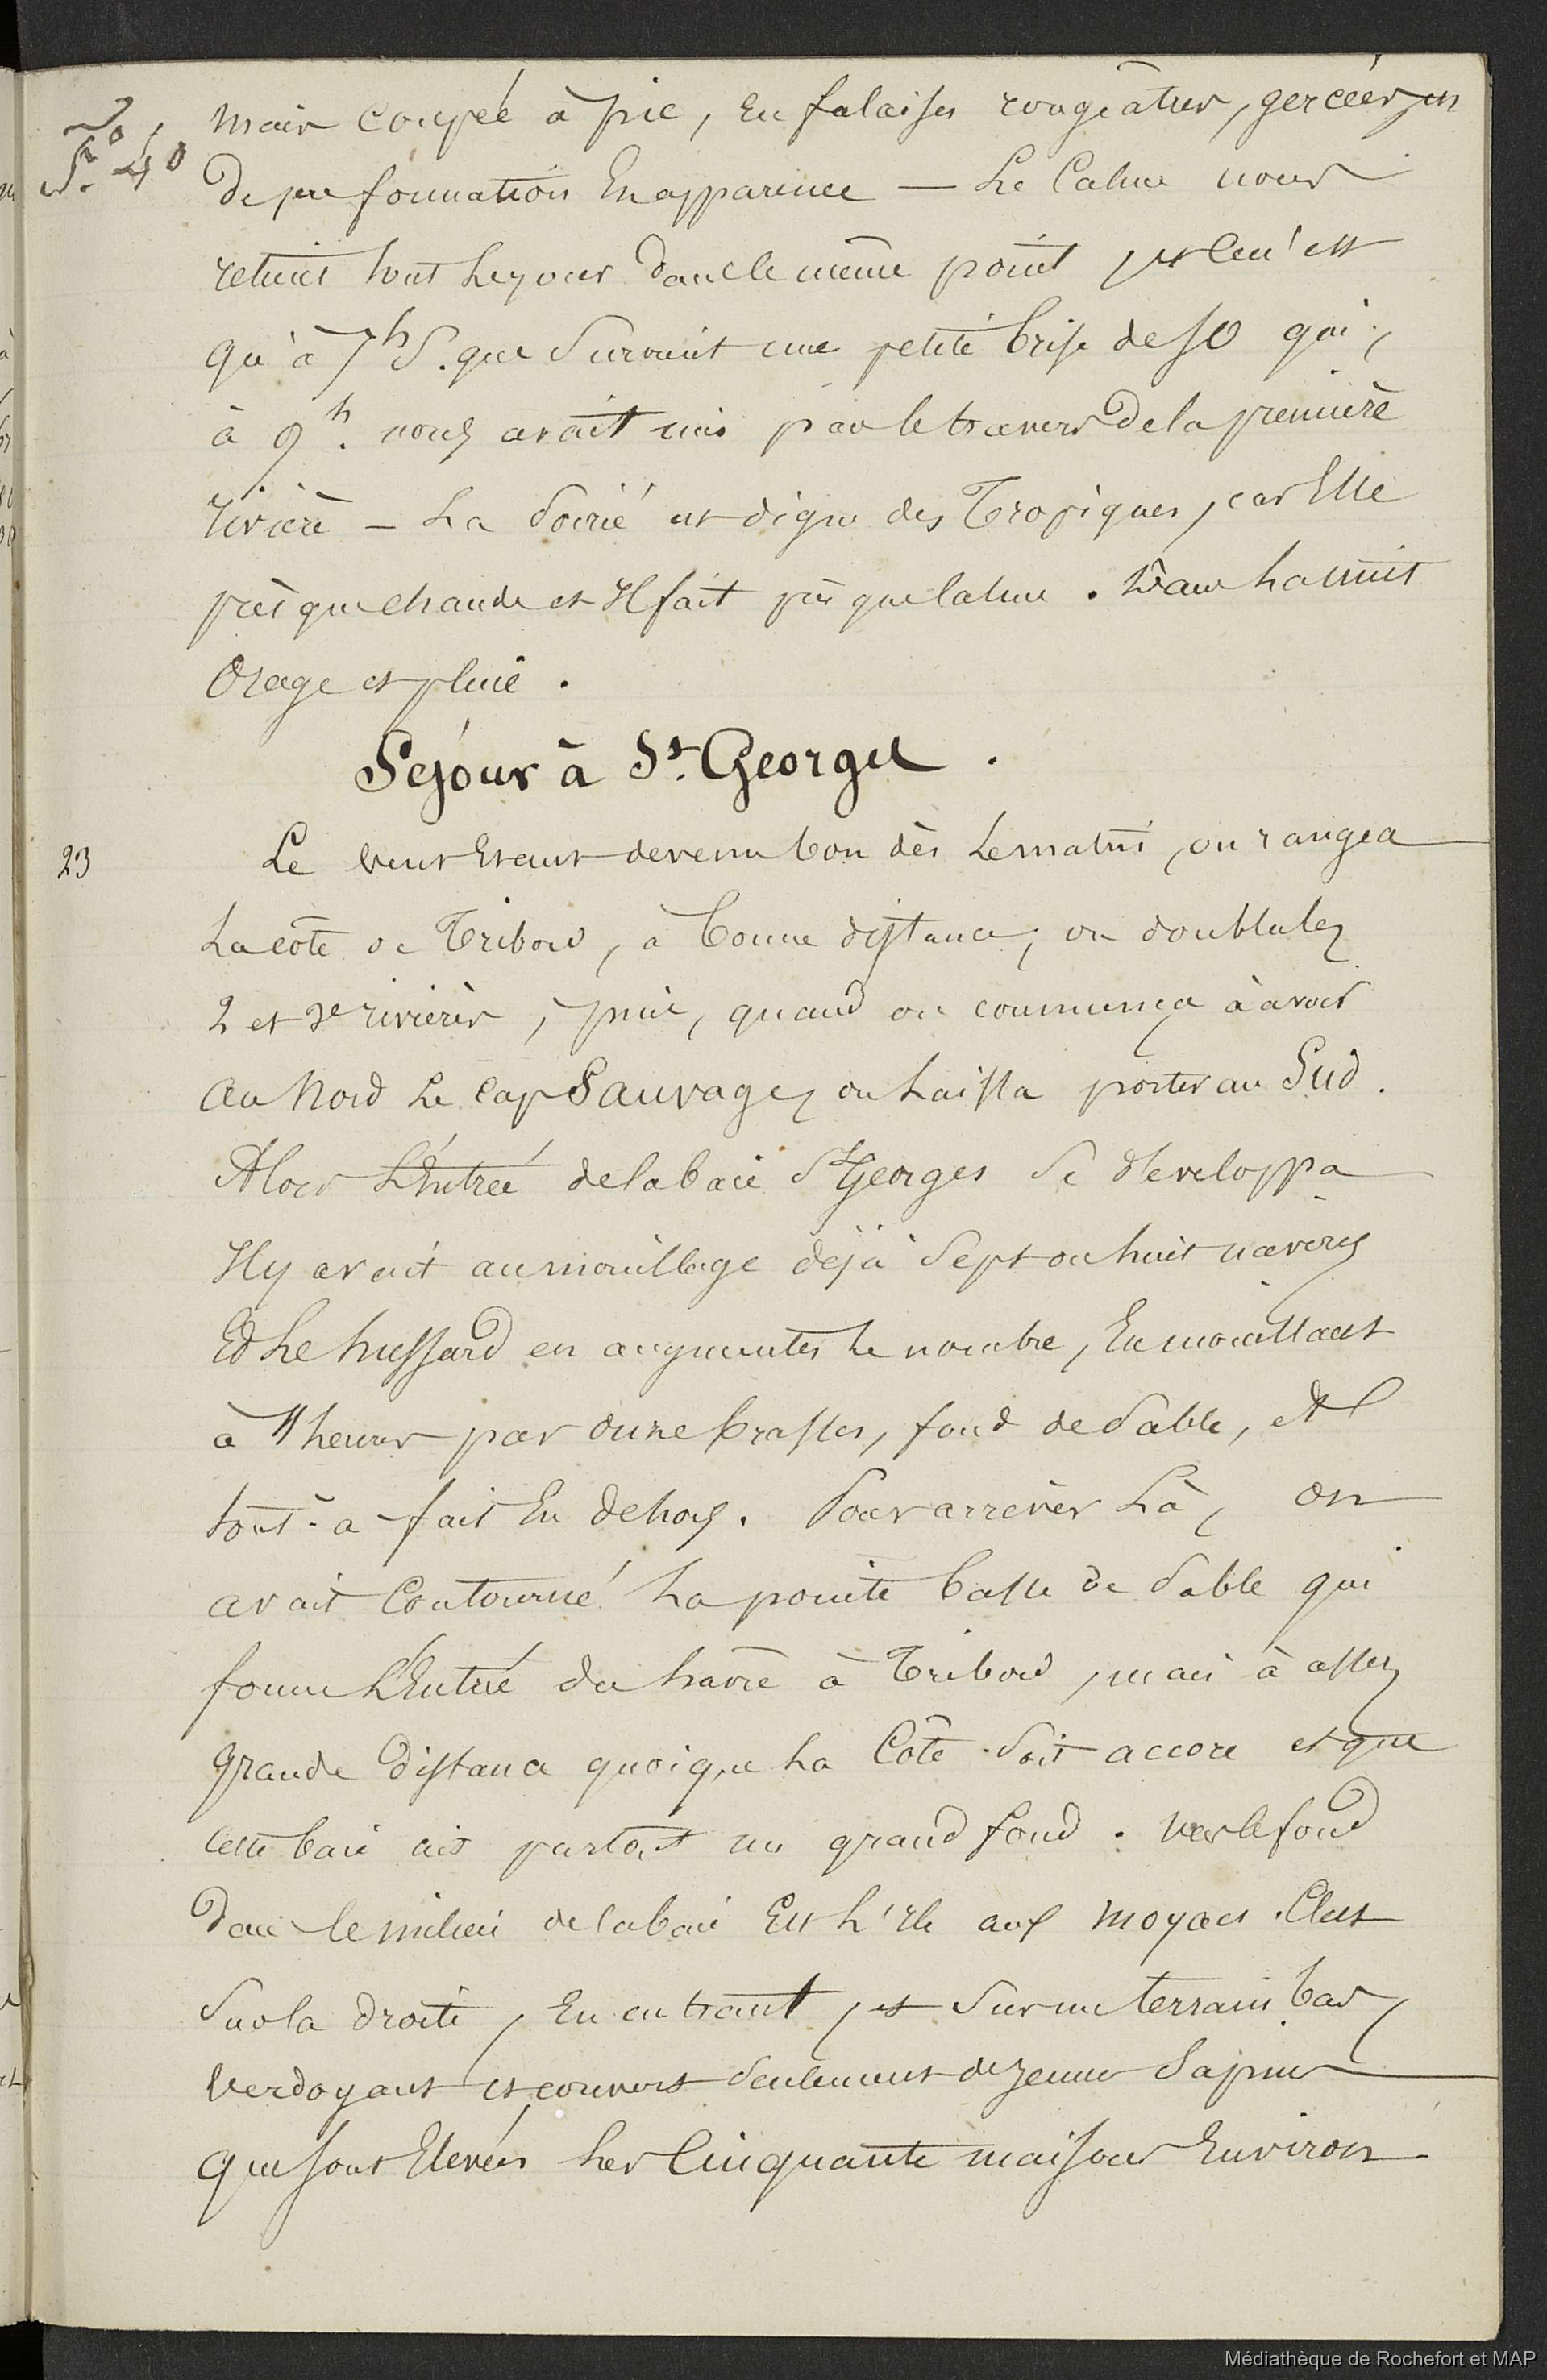 mais coupée à pic, en falaises rougeâtres, gercées, en
de formation en apparence — Le Calme nous
retint tout le jour dans le même point, et ce n'est
qu'à 7h S. que survint une petite brise de SO qui,
à 9h. nous avait mis par le travers de la première
rivière — La soirée est digne des Tropiques, car Elle
presque chaude et Il fait presque calme. Dans la nuit
Orage et pluie.
Séjour à St. Georges.
23 Le vent étant devenu bon dès le matin, on rangea
La côte de Tribord, à bonne distance; on doubla les
2 et 3e rivières, puis, quand on commença à avoir
au Nord Le Cap Sauvage, on laissa porter au Sud.
Alors L'Entrée de la baie St Georges se développa
Il y avait au mouillage déjà sept ou huit navires
Et Le hussard en augmenta le nombre, En mouillant
à 11 heures par onze brasses, fond de sable, et
tout-à-fait En dehors. Pour arriver Là, on
avait Contourné La pointe basse de sable qui
forme L'Entrée du havre à Tribord, mais à assez
grande distance quoique La Côte soit accore et que
cette baie ait partout un grand fond. Vers le fond
dans le milieu de la baie Est L'Ile aux Moyacs. C'est
Sur la droite, En entrant, et sur un terrain bas,
Verdoyant et couvert seulement de jeunes sapins
que sont Elevées Les Cinquante maisons Environ
Médiathèque de Rochefort et MAP